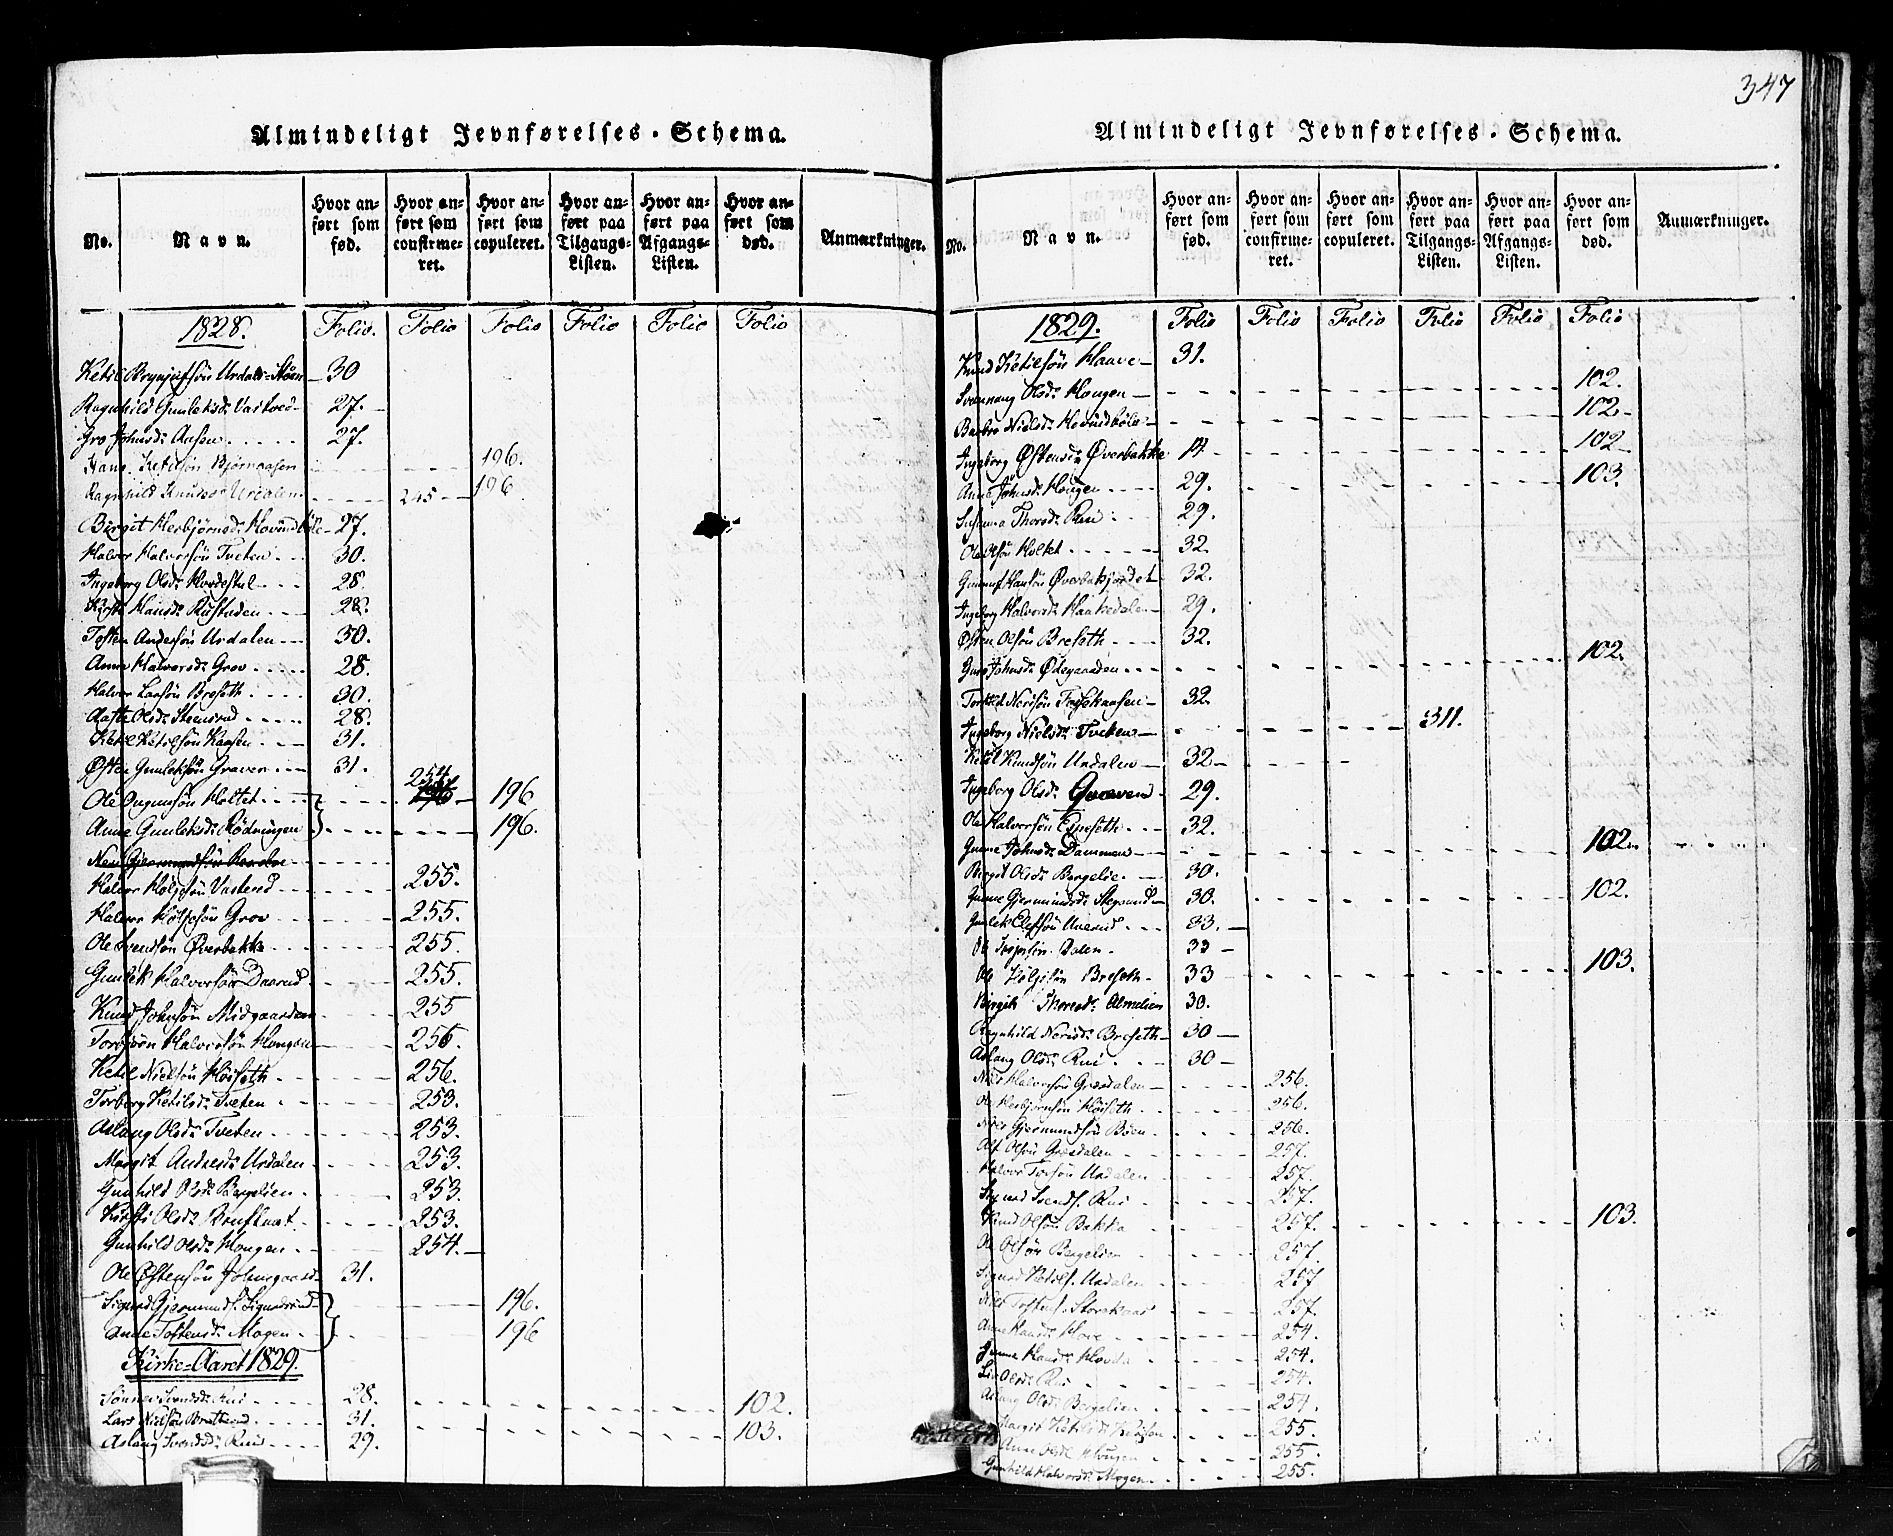 Almindeligt Jevnførelses-Schema.
No. Navn. Hvor anført som fød. Hvor anført som confirmeret. Hvor anført som copuleret. Hvor anført paa Tilgangs-Listen. Hvor anført paa Afgangs-Listen. Hvor anført som død. Anmærkninger.
1828. Folio. Folio Folio Folio Folio Folio
Ketil Urdals 30
Ragnhild Gunleksd: 27.
Gro Johnsd: Aasen 27.
Hans Ketilsön Bjørnaasen 196.
Ragnhild Knudsd: Urdalen 245 196
Birgit Herbjörnsd: 27.
Halvor Halvorsön Tveten 30.
Ingeborg Olsd: 28
Hansd: Rustaden 28.
Tosten Andersön Urdalen 30.
Anne Halvorsd: Grov 28.
Halvor Larsön Breseth 30.
Aaste Olsd: Steensrud 28.
Ketil Ketilsön Haasen 31.
Østen Gunleksön Graven 31.
Ole Holtet 254 196
Anne Gunleksd: Rödningen 196.
Halvor Holjesön 255.
Halvor Holjesön Grov 255.
Ole Svendsön Øverbakke 255.
Gunlek Halvorsön Daarud 255.
Knud Johnsön Midgaarden 255
Torbjörn Halvorsön Hougen 256.
Ketil Nielsön Höiseth 256.
Torborg Ketilsd: Tveten 253.
Aslaug Olsd: Tveten 253.
Margit Andersd: Urdalen 253.
Gunhild Olsd: Bergelien 253.
Kirsti Olsd: 253.
Gunhild Olsd: Hougen 254.
Ole Østensön 31.
Sigurd Gjermunds. Sigurdsrud 196.
Anne Tostensd: Mogen 196
Kirke-Aaret 1829.
Svendsd: Rui 28. 102.
Lars Nielsön 31. 103.
Aslaug Svendsd: Ruis 29.
347
Almindeligt Jevnførelses-Schema.
No. Navn. Hvor anført som fød. Hvor anført som confirmeret. Hvor anført som copuleret. Hvor anført paa Tilgangs-Listen. Hvor anført paa Afgangs-Listen. Hvor anført som død. Anmærkninger.
1829. Folio Folio Folio Folio Folio Folio
Knud Ketilsön Haave 31.
Svannaug Olsd: Hougen 102.
Barbro Nielsd: 102
Ingeborg Østensd: Øverbakke 102
Anne Johnsd: Hougen 29. 103.
Susanna Thorsd: Rui 29.
Ole Olsön Holtet 32.
Øverbakjordet 32.
Ingeborg Halvorsd: Haakedalen 29.
Østen Olsön Breseth 32.
Guro Johnsd: Ødegaarden 102.
Torkild Nerisön 32.
Ingeborg Nielsd: Tveten 311.
Ketil Knudsön Urdalen 32
Ingeborg Olsd: Graven 29.
Ole Halvorsön Espeseth 32.
Gunne Johnsd: Dammen 102.
Birgit Olsd: Bergelie 30.
Gunne Gjermundsd: 30. 102.
Gunlek 33.
Ole Dalen 33
Ole Holjesön Breseth 33 103.
Birgit Thoresd: Almelien 30.
Ragnhild Nerisd: Breseth 30
Aslaug Olsd: Rui 30
Niels Halvorsön Gresdalen 256.
Ole Herbjörnsön Höiseth 256.
Niels Gjermundsön Böen 256.
Olsön Gresdalen 257.
Halvor Torsön Urdalen 257.
Sigurd Svends. Rui 257.
Knud Olsön Bakka 257. 103.
Ole Olsön Bergelien 257
Sigurd Ketils. Urdalen 257
Niels Tostens. 257.
Anne Hansd: Hove 254.
Gunne Hansd: Hovda 254.
Liv Olsd: Rui 254.
Aslaug Olsd: Bergelien 254.
Margit Ketilsd: 255.
Anne Olsd: Hougen 255.
Gunhild Halvorsd: Mogen 255.